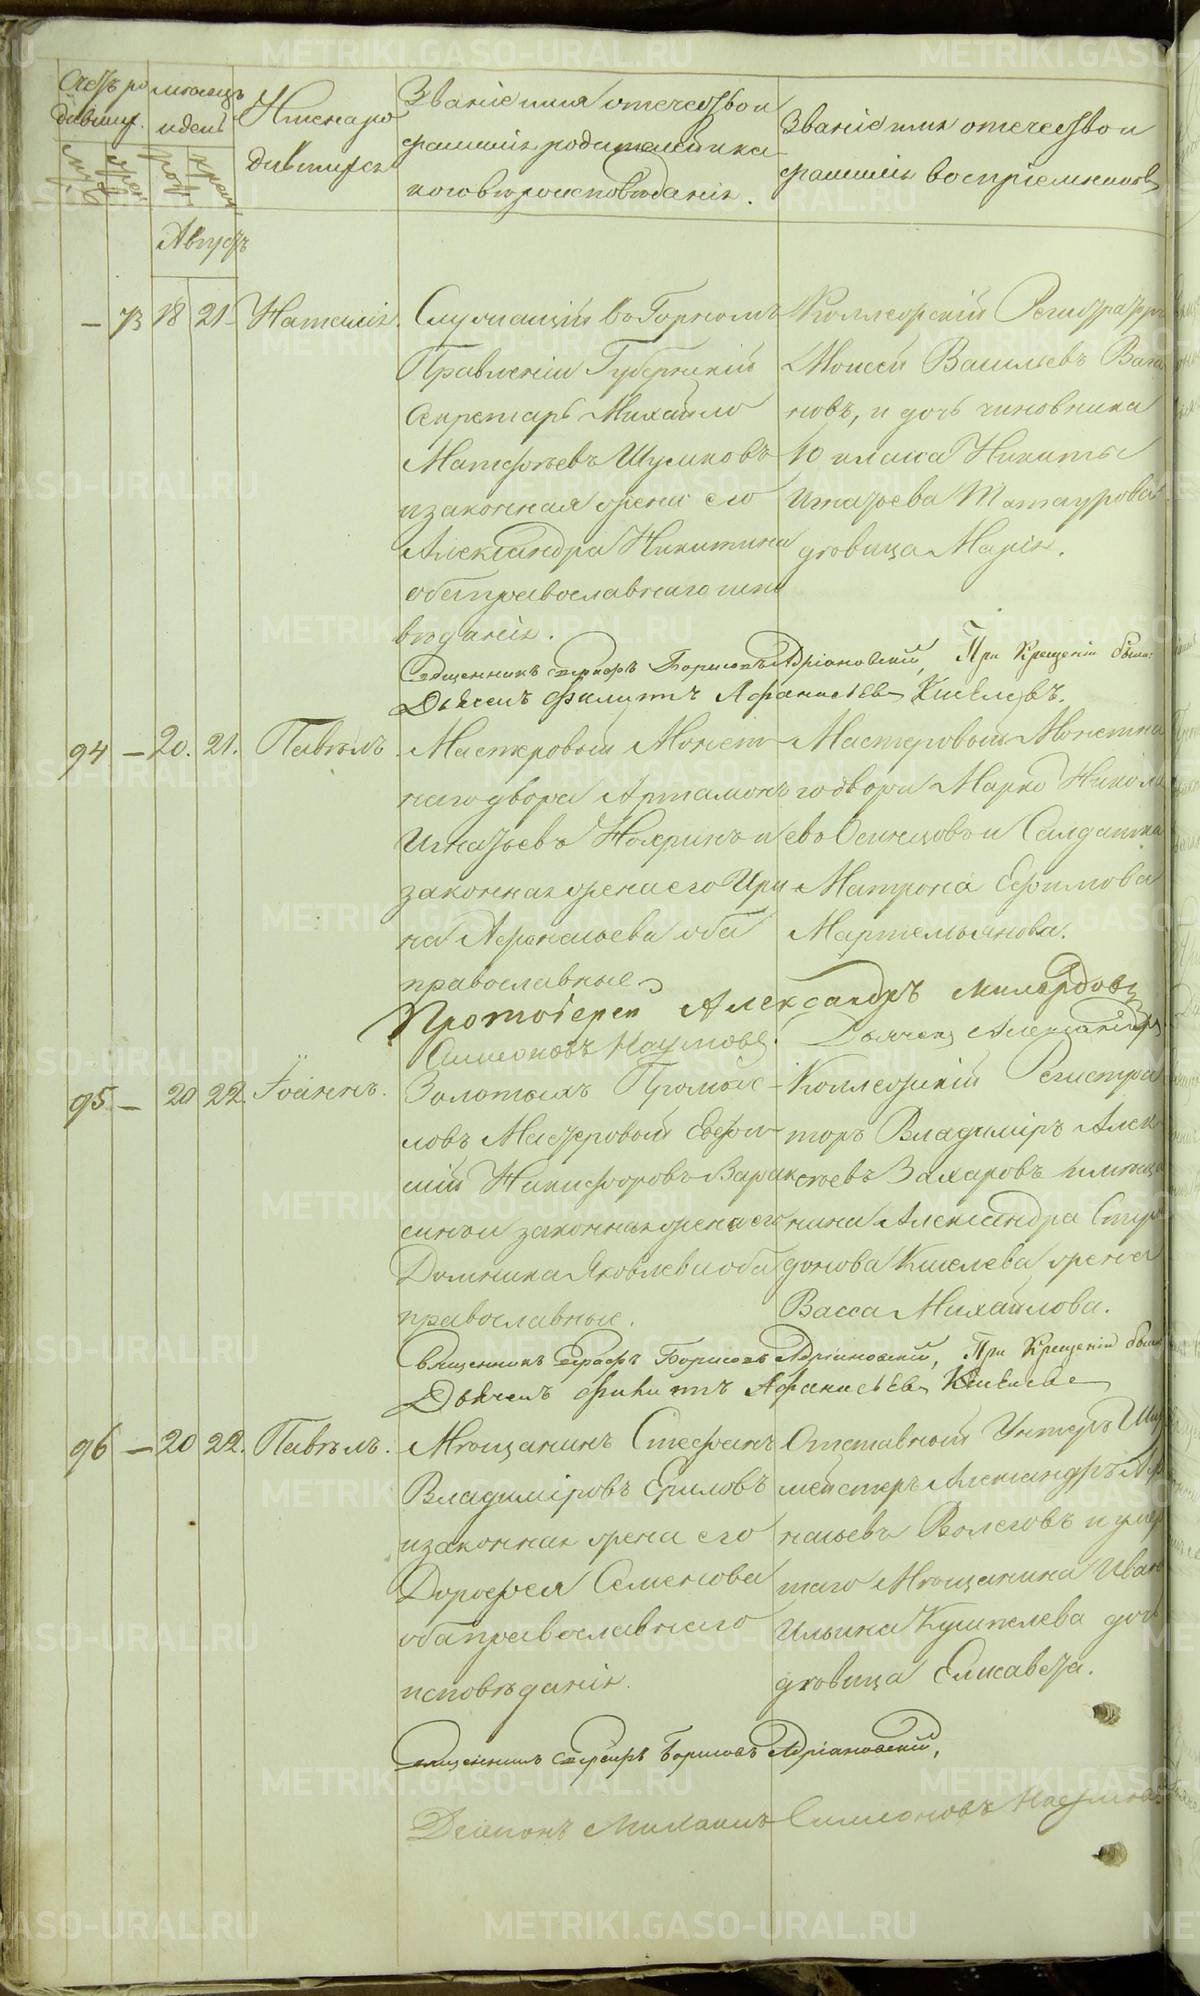 Счетъ ро
дившихся
мѣсяцъ
и день
Имена ро
дившихся
Званіе имя отечество и
фамилія родителей и ка
кого вѣроисповѣданія.
Званіе имя отечество и
фамилія воспріемниковъ
муж.
жен.
рожд.
крещ.
Августъ
— 73 18 21 Наталія.
Служащій въ Горномъ
Правленіи Губернскій
Секретарь Михайло
Матфѣевъ Шумковъ
и законная жена его
Александра Никитина
оба православнаго испо
вѣданія.
Коллежскій Регистраторъ
Моисей Васильевъ Вага
новъ, и дочь чиновника
10 класса Никиты
Игнатьева Татаурова
дѣвица Марія.
Священникъ Борисовъ Адріановскій, При Крещеніи были:
Дьячекъ Филиппъ Афанасьевъ Киселевъ.
94 — 20. 21. Павелъ.
Мастеровый Монет
наго двора Артамонъ
Игнатьевъ и
законная жена его Ири
на Афанасьева оба
православные
Мастеровый Монетна
го двора Марко Никола
евъ и Салдатка
Матрона Ефимова
Мартемьянова.
Протоіерей Александръ Милордовъ
Симеоновъ Наумовъ. Дьячекъ Александръ
95 — 20 22. Іоаннъ.
Золотыхъ Промыс
ловъ Мастеровый Евфи
мій Никифоровъ Варак
синъ и законная жена его
Домника Яковлева оба
православные.
Коллежскій Регистра
торъ Владиміръ Алек
сѣевъ Захаровъ и мѣща
нина Александра Спири
донова Киселева жена
Васса Михайлова.
Священникъ Борисовъ Адріановскій, При Крещеніи были
Дьячекъ Филиппъ Афанасьевъ Киселевъ
96 — 20 22. Павелъ.
Мѣщанинъ Стефанъ
Владиміровъ Ериловъ
и законная жена его
Дорофея Семенова
оба православнаго
исповѣданія.
Отставной Унтеръ Ших
мейстеръ Александръ Афа
насьевъ Волеговъ и умер
шаго Мѣщанина Ивана
Ильина Кушелева дочь
дѣвица Елисавета.
Священникъ Борисовъ Адріановскій,
Діаконъ Михаилъ Симеоновъ Наумовъ